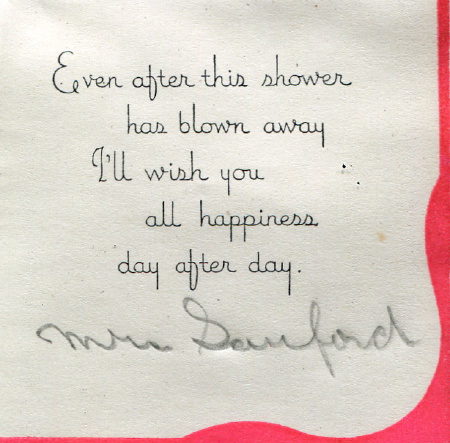 Even after this shower
has blown away
I'll wish you
all happiness
day after day.
Mrs Sanford